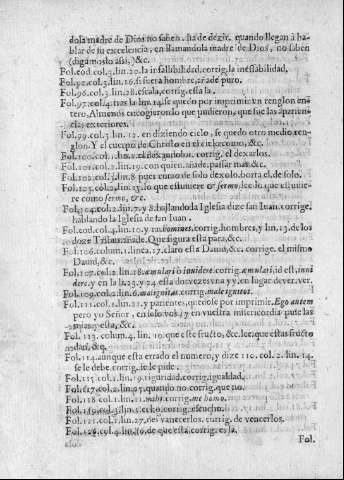 dola madre de Dios no saben. Ha de dezir. quando llegan à ha-
blar de su excelencia, en llamandola madre de Dios, no saben
(digamoslo assi) &c.
Fol.eod.col.3.lin.20.la infallibilidad.corrig.la ineffabilidad.
Fol.92.col.3.lin.16.si fuera hombre, añade puro.
Fol.96.col.3.lin.28.escala, corrig.essa la.
Fol.97.col.4. tras la lin.14.se quedo por imprimir vn renglon en-
tero, Almenos encogieronlo que pudieron, que fue las aparien-
cias exteriores.
Fol.99.col.3.lin.12. en diziendo cielo, se quedo otro medio ren-
glon. Y el cuerpo de Christo en el &c.
Fol.100.col.1.lin.1. corrig. el dexarlos.
Fol.101.col.1.lin.19.con quien. añade. passar mas &c.
Fol.102.col. lin.8. pues como de solo dexolo.borra el. de solo.
Fol.103.col.2.lin.23.lo que estuuiere &c. fermo, lee lo que estuuie-
re como sermo, &c.
Fol.104.col.2.lin.7.y 8.hallando la Iglesia dize san Iuan. corrige.
hablando la Iglesia de san Iuan.
Fol.eod.col.4.lin.10.y 12. homines. corrig.hombres, y lin.13.de los
doze Tribus.añade.Que figura esta para, &c.
Fol.106.colum.1.linea.17.claro esta Dauid, &c. corrige.el mismo
Dauid, &c.
Fol.107.col.2.lin.18.æmulari ò inuidere.corrig.æmulari, id est, inui
dere. y en la la.23.y 24.esta dos vezes va y y, en lugar de ver. ver.
Fol.109.col.2.lin.6. malignitas. corrig. male ignitos.
Fol.111.col.1.lin.21. y parientes, quedose por imprimir. Ego autem
pero yo Señor, en solo vos, y en vuestra misericordia puse las
mias y esta, &c.
Fol. 113. colum.4. lin. 10. que este frusto, &c.lee.que estas frusto
das, &c.
Fol.114.aunque esta errado el numero, y dize 110. col.2. lin. 14.
se le debe. corrig. se le pide.
Fol.115.col.1.lin.19.siguridad.corrig.igualdad.
Fol.117.col.2.lin.25.quando no.corrig.que no.
Fol.118.col.1.lin.11.mahi.corrig.me homo.
Fol.119.col.3.lin.1.ecko.corrig.escuchn.
Fol.121.col.1.lin.27.des vanecerlos. corrig.de vencerlos.
Fol.126.col.4.lin.16.de que esta.corrig.essa.
Fol.